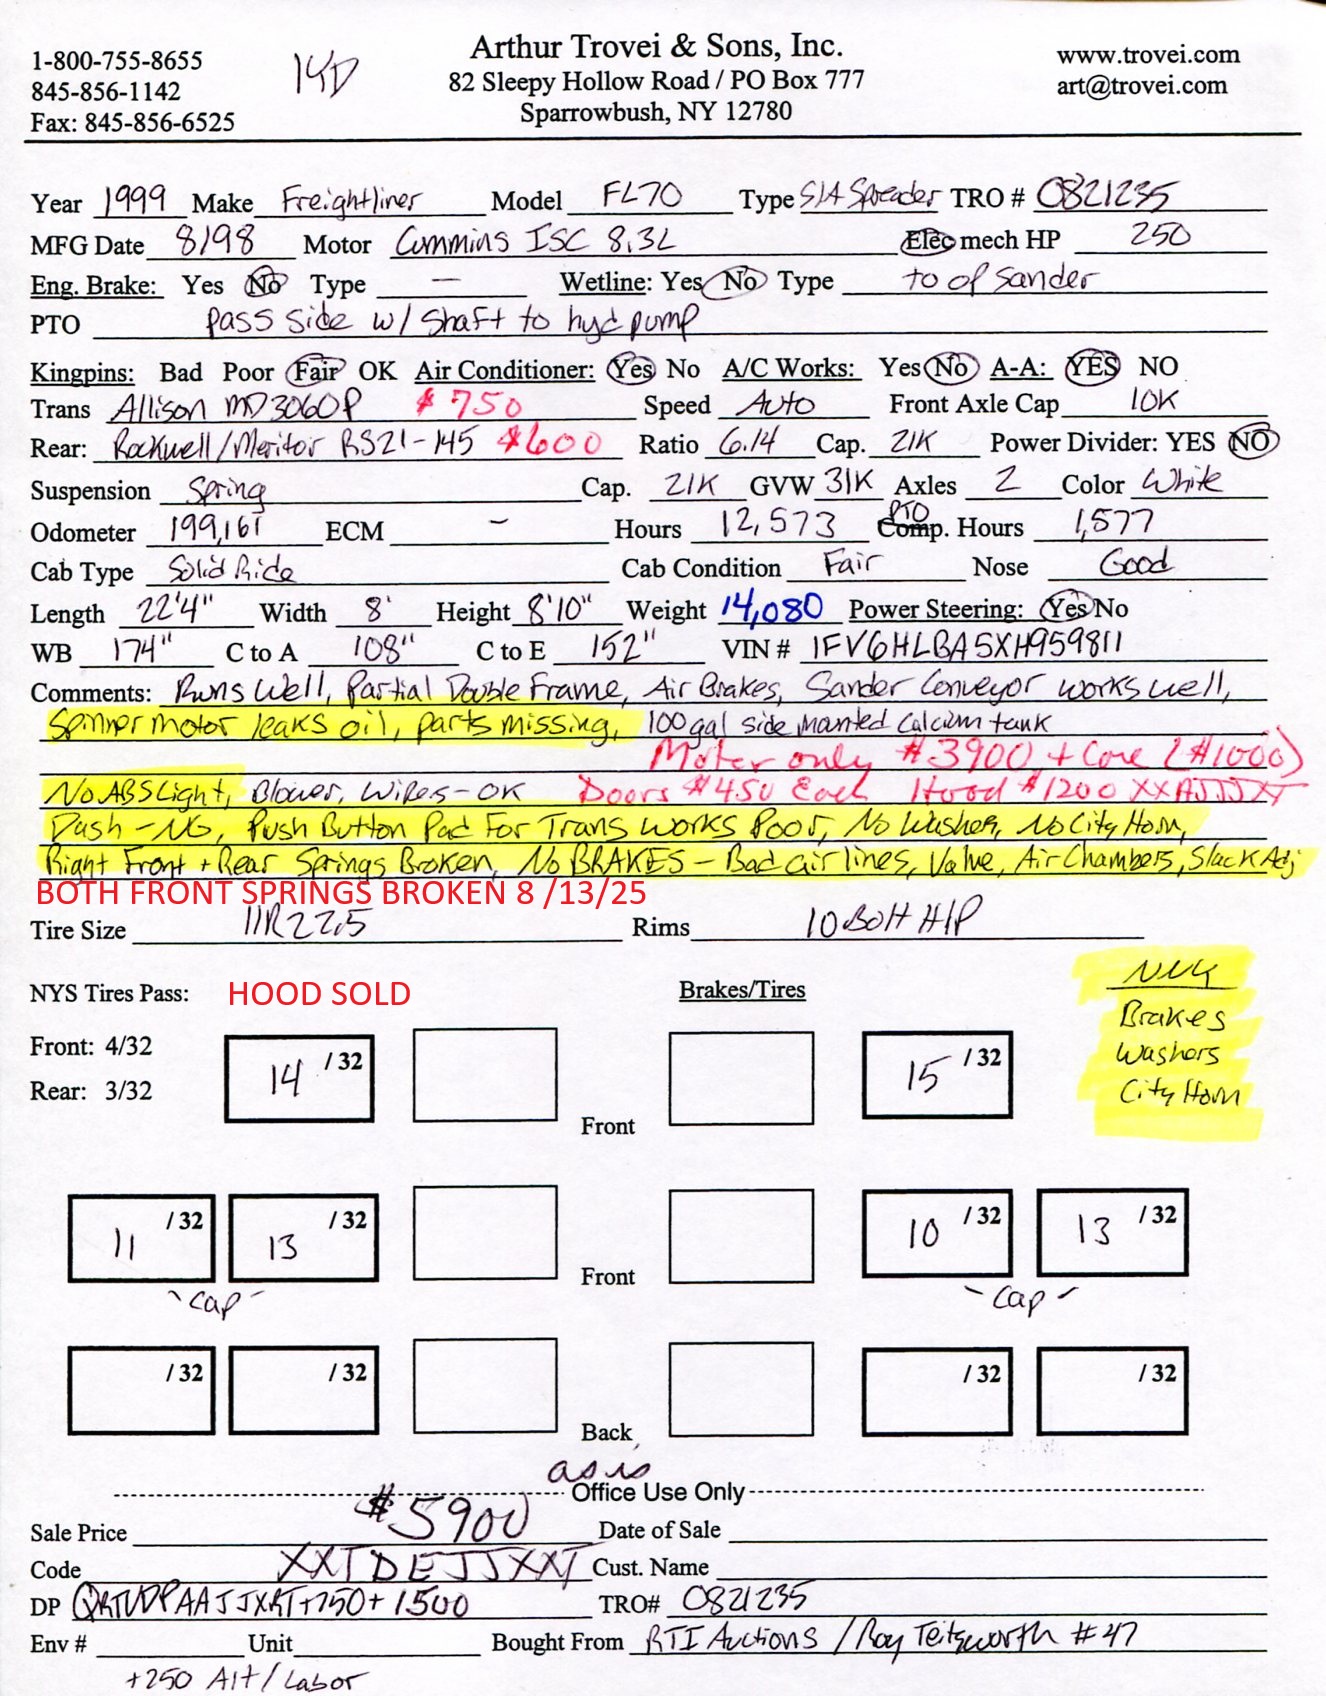 1-800-755-8655
845-856-1142
Fax: 845-856-6525
Arthur Trovei & Sons, Inc.
82 Sleepy Hollow Road / PO Box 777
Sparrowbush, NY 12780
www.trovei.com
art@trovei.com
Year 1999 Make Freightliner Model FL70 Type S/A Spreader TRO # 0821235
MFG Date 8/98 Motor Cummins ISC 8.3L Elec mech HP 250
Eng. Brake: Yes No Type - Wetline: Yes No Type to of Sander
PTO pass side w/ shaft to hyd pump
Kingpins: Bad Poor Fair OK Air Conditioner: Yes No A/C Works: Yes No A-A: YES NO
Trans Allison MD3060P $750 Speed Auto Front Axle Cap 10K
Rear: Rockwell/Meritor RS21-145 $600 Ratio 6.14 Cap. 21K Power Divider: YES NO
Suspension Spring Cap. 21K GVW 31K Axles 2 Color White
Odometer 199,161 ECM - Hours 12,573 PTO Comp. Hours 1,577
Cab Type Solid Ride Cab Condition Fair Nose Good
Length 22'4" Width 8' Height 8'10" Weight 14,080 Power Steering: Yes No
WB 174" C to A 108" C to E 152" VIN # 1FV6HLBA5XH959811
Comments: Runs Well, Partial Double Frame, Air Brakes, Sander Conveyor works well,
Spinner motor leaks oil, parts missing, 100 gal side mounted Calcium tank
Motor only $3900 + Core ($1000)
No ABS Light, Blower, Wipes-OK Doors $450 Each Hood $1200 XXAJJJXT
Dash - NG, Push Button Pad For Trans works Poor, No Washer, No City Horn,
Right Front + Rear Springs Broken, No BRAKES - Bad air lines, Valve, Air Chambers, Slack Adj
BOTH FRONT SPRINGS BROKEN 8 /13/25
Tire Size 11R22.5 Rims 10 Bolt H/P
NYS Tires Pass: HOOD SOLD Brakes/Tires
Brakes
Washers
City Horn
Front: 4/32
Rear: 3/32
14 /32 15 /32
Front
11 /32 13 /32 10 /32 13 /32
Front
Cap Cap
/32 /32 /32 /32
Back
as is
Office Use Only
Sale Price $5900 Date of Sale
Code XXTDEJJXXT Cust. Name
DP +750+1500 TRO# 0821235
Env # Unit Bought From RTI Auctions / Roy Teitsworth #47
+250 Alt/Labor